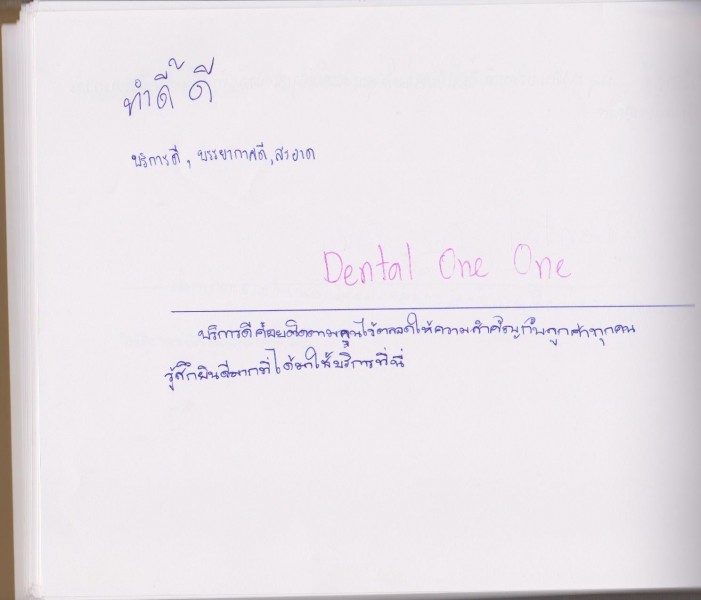 ทำดี๊ ดี
บริการดี, บรรยากาศดี, สะอาด
Dental One One
บริการดีค่อยติดตามดูแลไว้ตลอดให้ความสำคัญกับลูกค้าทุกคน
รู้สึกยินดีมากที่ได้มาใช้บริการที่นี่